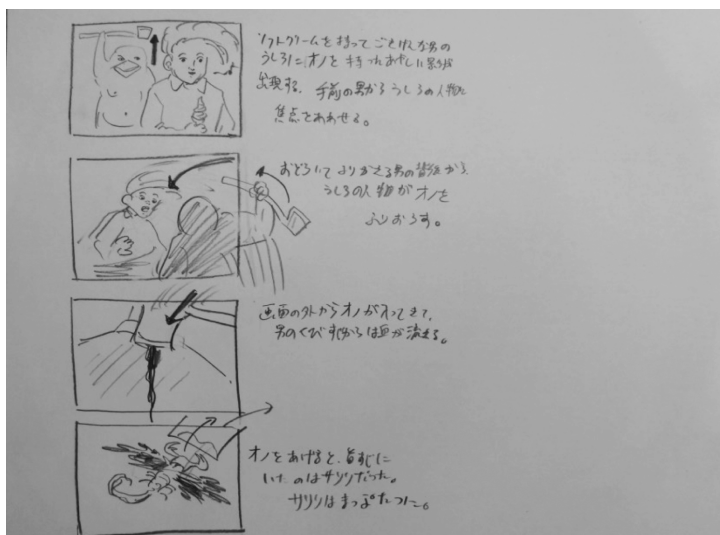 ソフトクリームを持ってごきげんな男の
うしろに、オノを持ったあやしい影が
出現する。手前の男からうしろの人物に
焦点をあわせる。
おどろいてふりかえる男の背後から、
うしろの人物がオノを
ふりおろす。
画面の外からオノが入ってきて、
男のくびすじからは血が流れる。
オノをあげると、首すじに
いたのはサソリだった。
サソリはまっぷたつに。